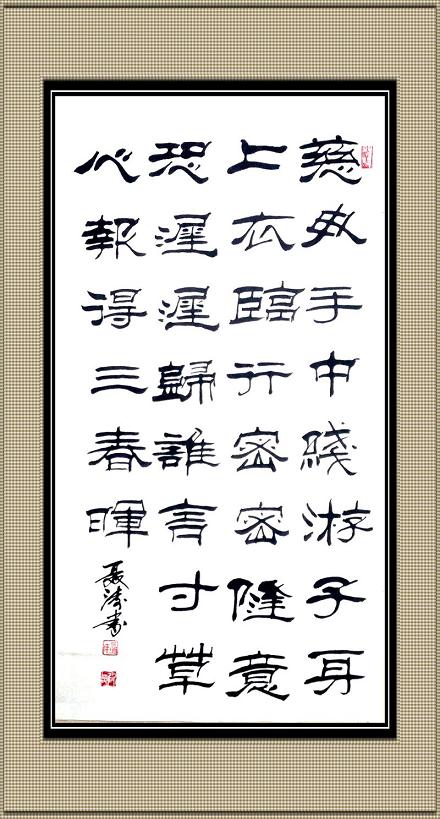 慈母手中綫游子身
上衣臨行密密縫意
恐遲遲歸誰言寸草
心報得三春暉
聂涛書